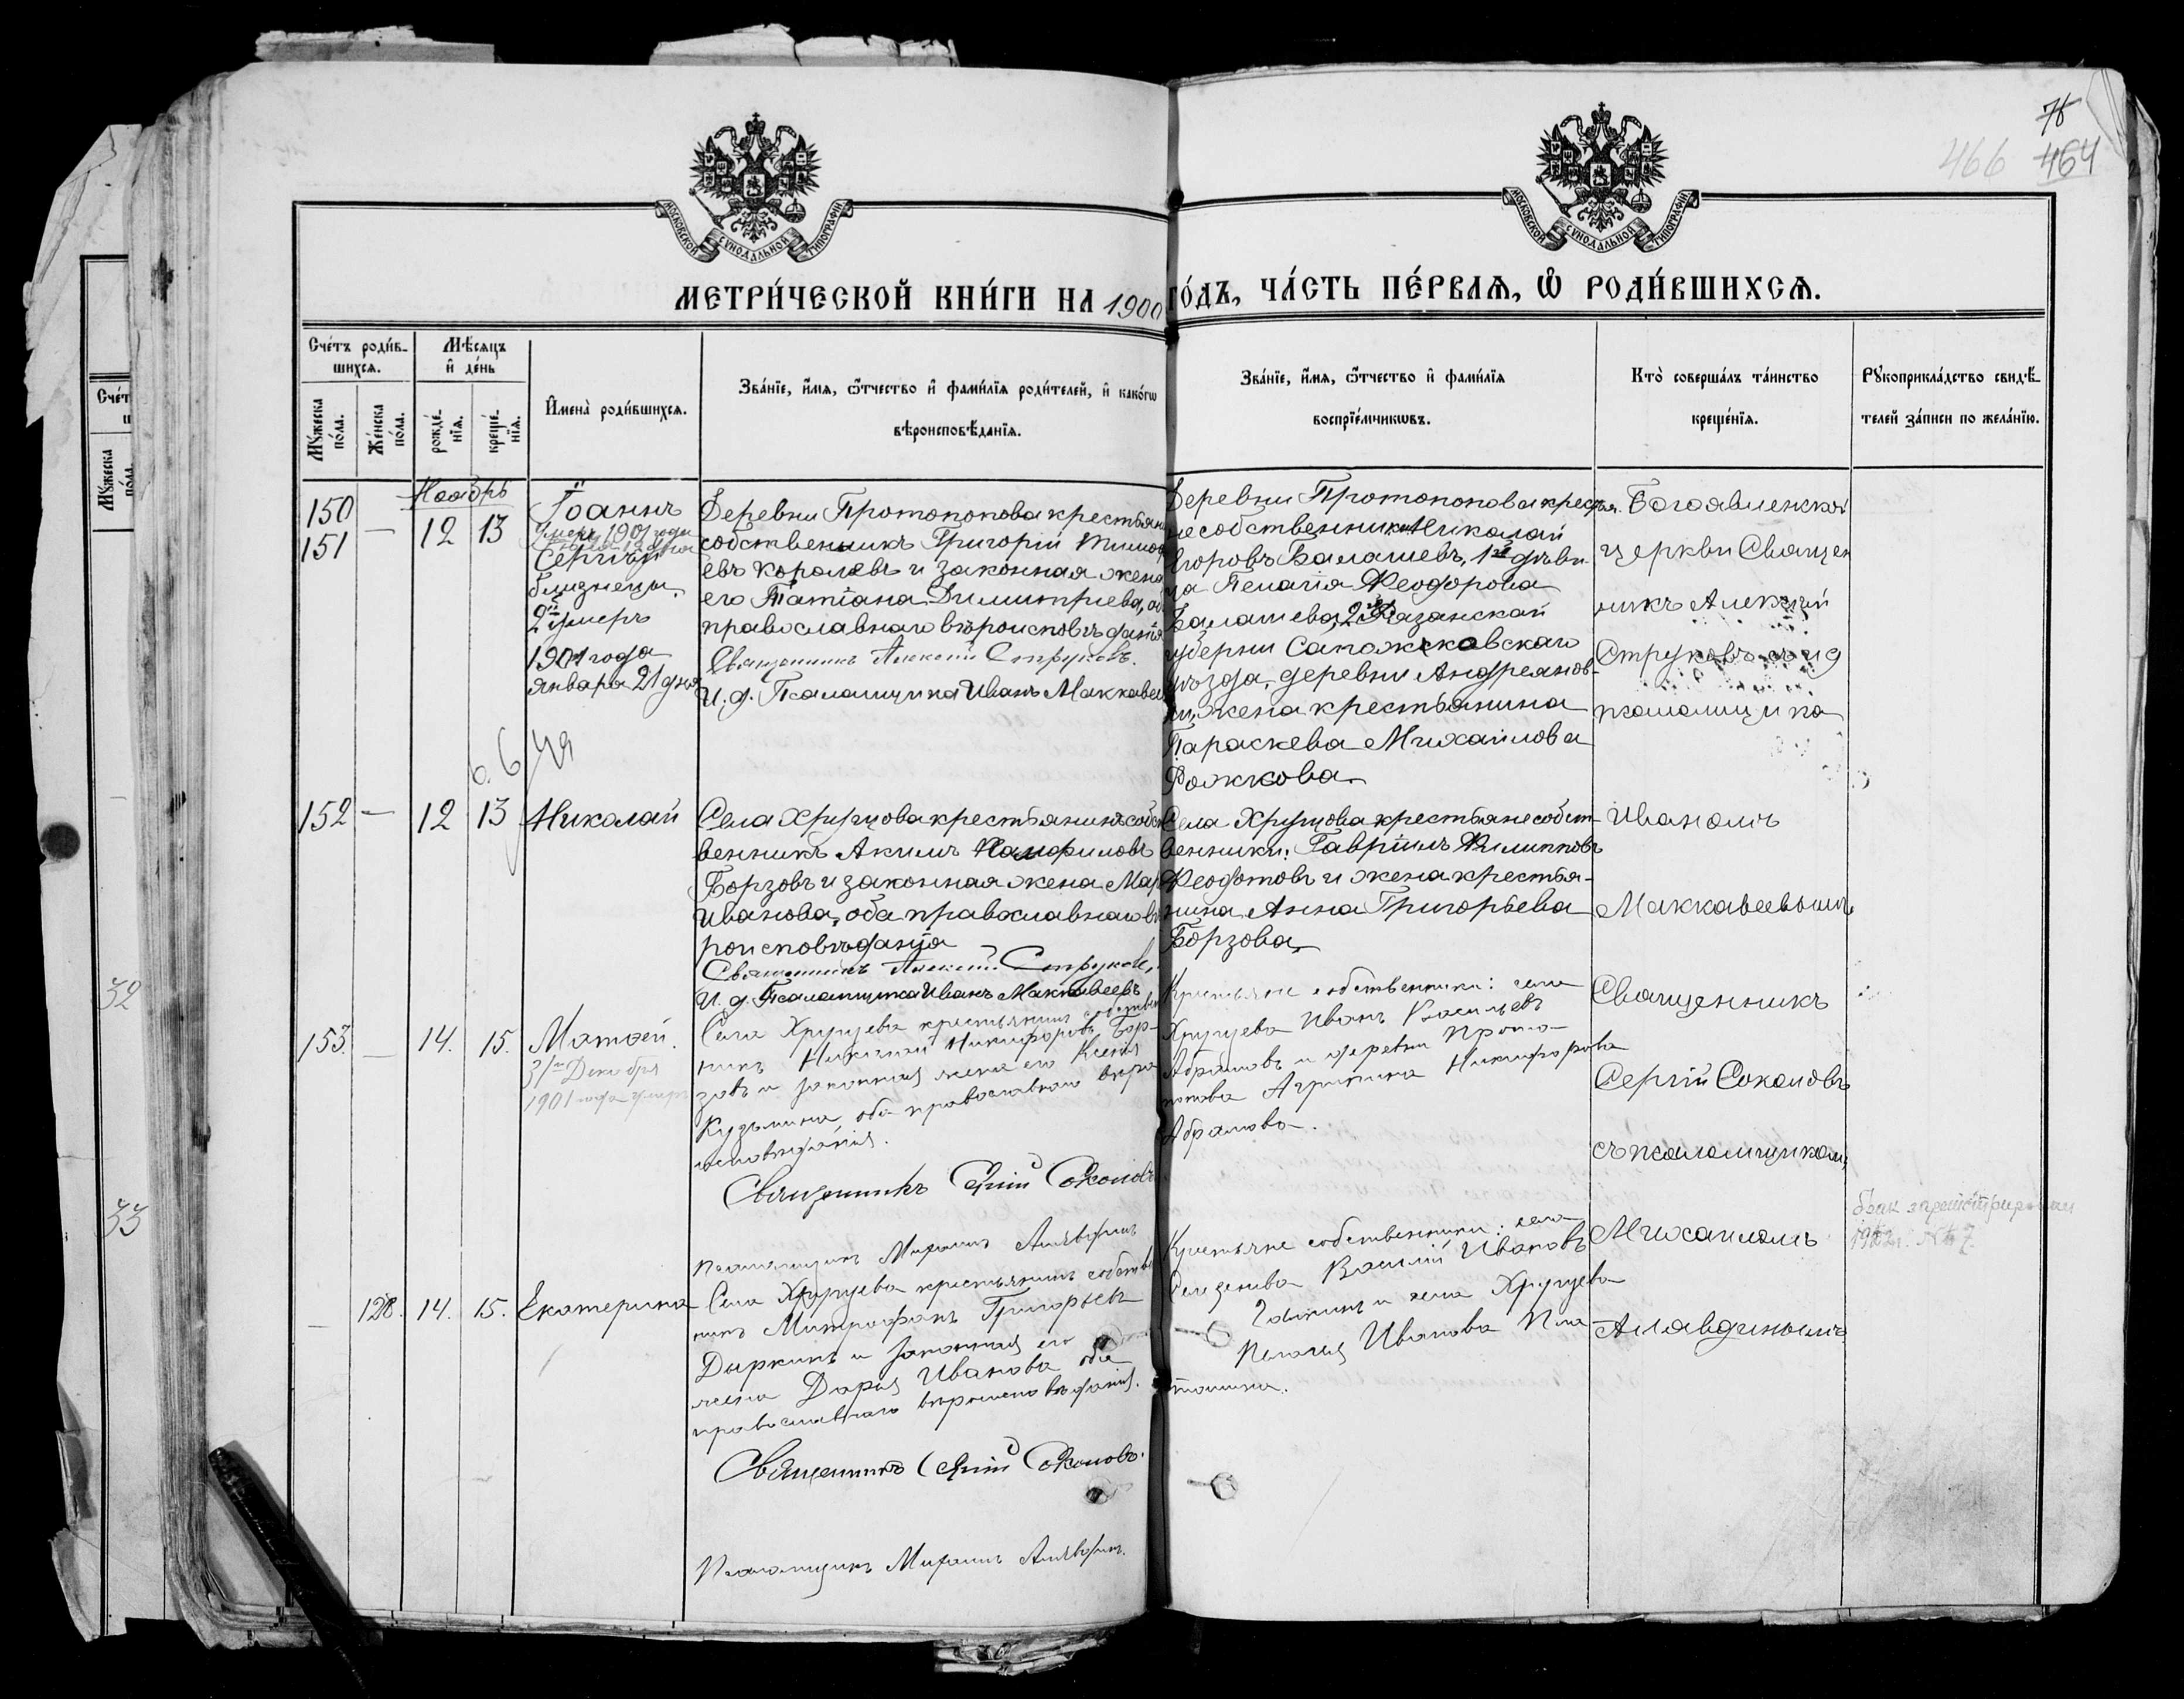 76
466 464
МОСКОВСКОЙ СУНОДАЛЬНОЙ ТИПОГРАФІИ
МОСКОВСКОЙ СУНОДАЛЬНОЙ ТИПОГРАФІИ
МЕТРИ́ЧЕСКОЙ КНИ́ГИ НА 1900 ГО́ДЪ, ЧА́СТЬ ПЕ́РВАѦ, Ѡ҆ РОДИ́ВШИХСѦ.
Сче́тъ роди́в-
шихсѧ.
Мꙋ́жеска по́ла.
Же́нска по́ла.
Мѣ́сѧцъ и҆ де́нь
рожде́-нїѧ.
креще́-нїѧ.
И҆мена̀ роди́вшихсѧ.
Зва́нїе, и҆́мѧ, ѻ҆́тчество и҆ фами́лїѧ роди́телей, и҆ како́гѡ
вѣроисповѣ́данїѧ.
Зва́нїе, и҆́мѧ, ѻ҆́тчество и҆ фами́лїѧ
воспрїе́мникѡвъ.
Кто̀ соверша́лъ та́инство
креще́нїѧ.
Рꙋкоприкла́дство свидѣ́-
телей за́писи по жела́нїю.
Ноябрь
150
151
—
12
13
Іоаннъ
Умеръ 1901 года
Сергѣй
близнецы.
2й умеръ
1901 года
января 21 дня
Деревни Протопопова крестьянинъ
собственникъ Григорій Тимоѳ
евъ Королевъ и законная жена
его Татіана Димитріева, оба
православнаго вѣроисповѣданія
Священникъ Алексій Струковъ.
И. д. Псаломщика Иванъ Маккавеевъ
Деревни Протопопова кресть.
не собственники Николай
Егоровъ Балашевъ, 1го дѣви
ца Пелагія Ѳеодорова
Балашева, 2го Рязанской
губерни Сапожковскаго
уѣзда, деревни Андреянов-
ки, жена крестьянина
Параскева Михаилова
Рожкова.
Богоявленской
церкви Священ
никъ Алексій
Струковъ съ и д
псаломщика
152
—
12
13
Николай
Села Хрущова крестьянинъ собст
венникъ Акимъ Памфиловъ
Борзовъ и законная жена Мар
Иванова, оба православнаго вѣ
роисповѣданія
Священникъ Алексій Струковъ,
И. д. Псаломщика Иванъ Маккавеевъ
Села Хрущова крестьяне собст-
венники: Гавріилъ Филипповъ
Ѳеодотовъ и жена крестья-
нина Анна Григорьева
Борзова.
Иваномъ
Маккавеевымъ
153.
—
14.
15.
Матѳей.
31го Декабря
1901 года умеръ
Села Хрущева крестьянинъ собствен
никъ Николай Никифоровъ Бор-
зовъ и законная жена его Ксенія
Кузьмина, оба православнаго вѣро
исповѣданія.
Священникъ Сергій Соколовъ
Псаломщикъ Михаилъ Алявдинъ
Крестьяне собственники: села
Хрущева Иванъ Васильевъ
Абрамовъ и деревни Прото-
попова Агрипина Никифорова
Абрамова.
Священникъ
Сергій Соколовъ
съ псаломщикомъ
Михаиломъ
Алявдинымъ
—
128.
14.
15.
Екатерина
Села Хрущева крестьянинъ собствен
никъ Митрофанъ Григорьевъ
Дыркинъ и законная его
жена Дарья Иванова оба
православнаго вѣроисповѣданія.
Священникъ Сергій Соколовъ.
Псаломщикъ Михаилъ Алявдинъ.
Крестьяне собственники: села
Василій Ивановъ
Галкинъ и села Хрущева
Пелагея Иванова Пла
тошина.
брак зарегистрирован
№ 7
Сче́т
Мꙋ́жеска по́ла
32
33